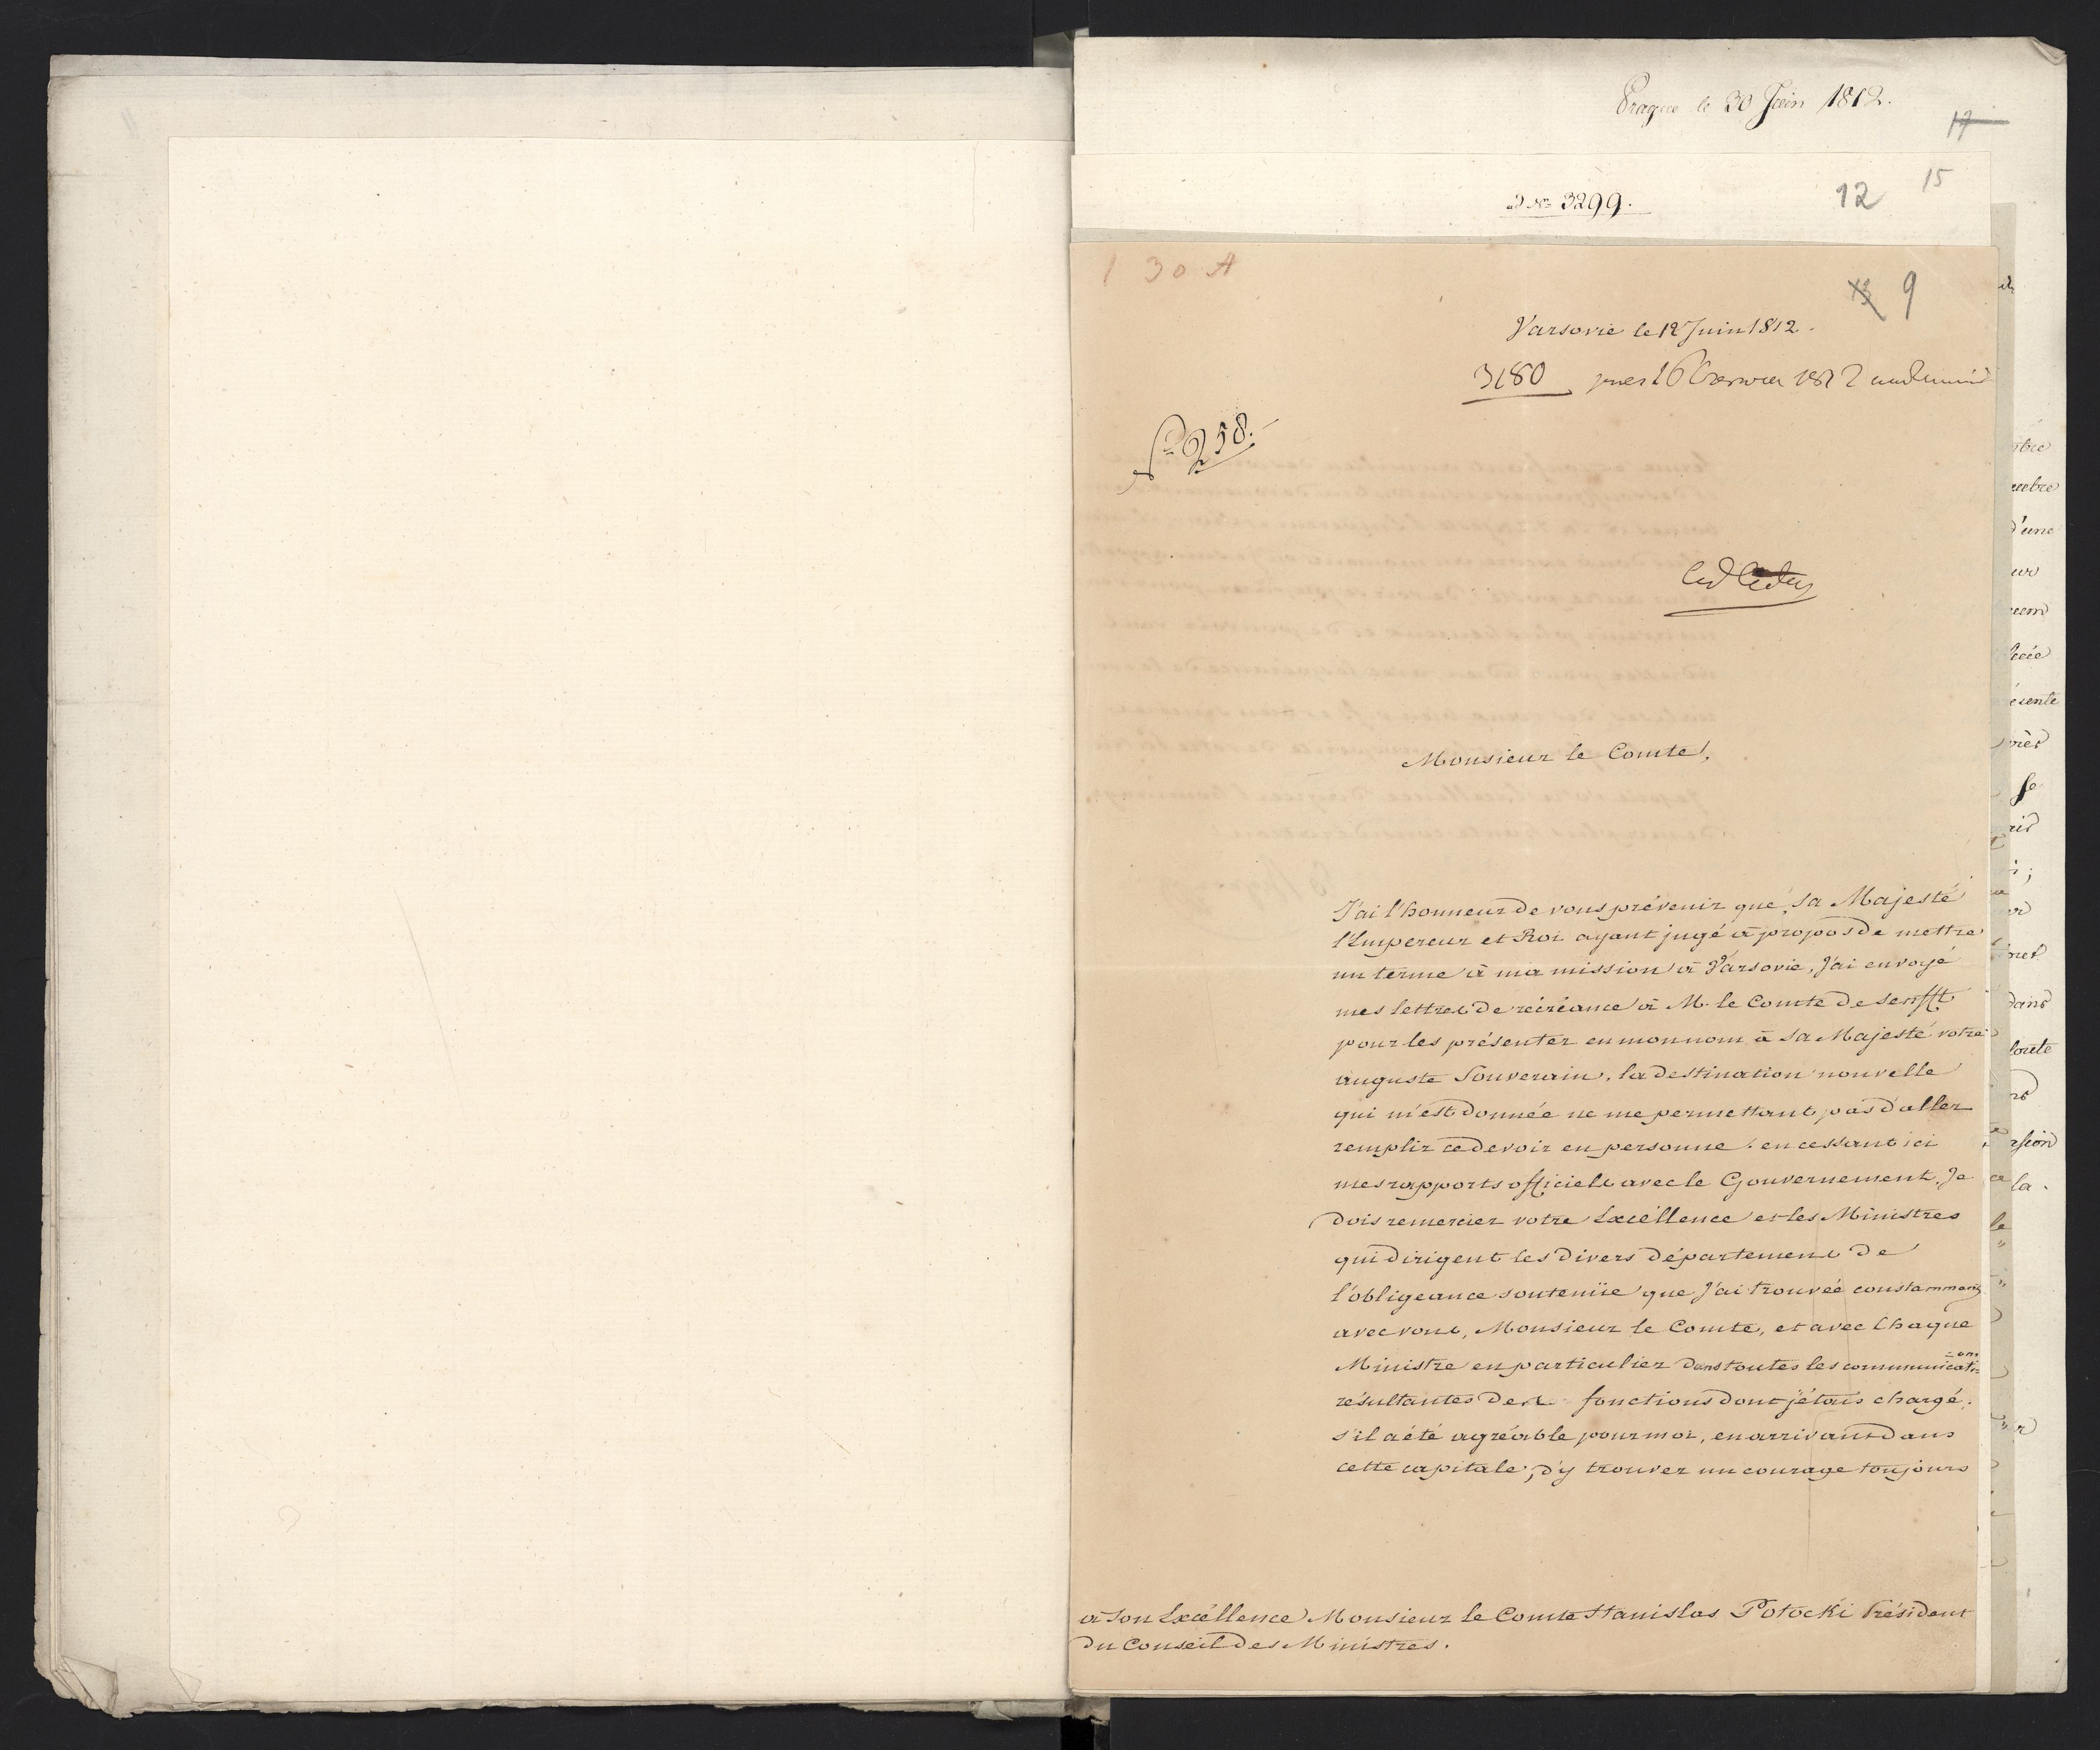 Prague le 30 Juin 1812.
17
15
12
ad No 3299.
130 A
13 9
Varsovie le 12 Juin 1812.
3180 16 Czerwca 1812
No 258.
Monsieur le Comte,
J'ai l'honneur de vous prévenir que, sa Majesté
l'Empereur et Roi ayant jugé à propos de mettre
un terme à ma mission à Varsovie, j'ai envoyé
mes lettres de récréance à M. le Comte de Senfft
pour les présenter en mon nom à sa Majesté votre
auguste Souverain, la destination nouvelle
qui m'est donnée ne me permettant pas d'aller
remplir ce devoir en personne. en cessant ici
mes rapports officiels avec le Gouvernement, Je
dois remercier votre Excéllence et les Ministres
qui dirigent les divers départemens de
l'obligeance soutenüe que J'ai trouvée constamment
avec vous, Monsieur le Comte, et avec chaque
Ministre en particulier dans toutes les communications
résultantes des fonctions dont j'étais chargé.
s'il a été agréable pour moi, en arrivant dans
cette capitale, d'y trouver un courage toujours
à Son Excéllence Monsieur le Comte Stanislas Potocki Président
du Conseil des Ministres.